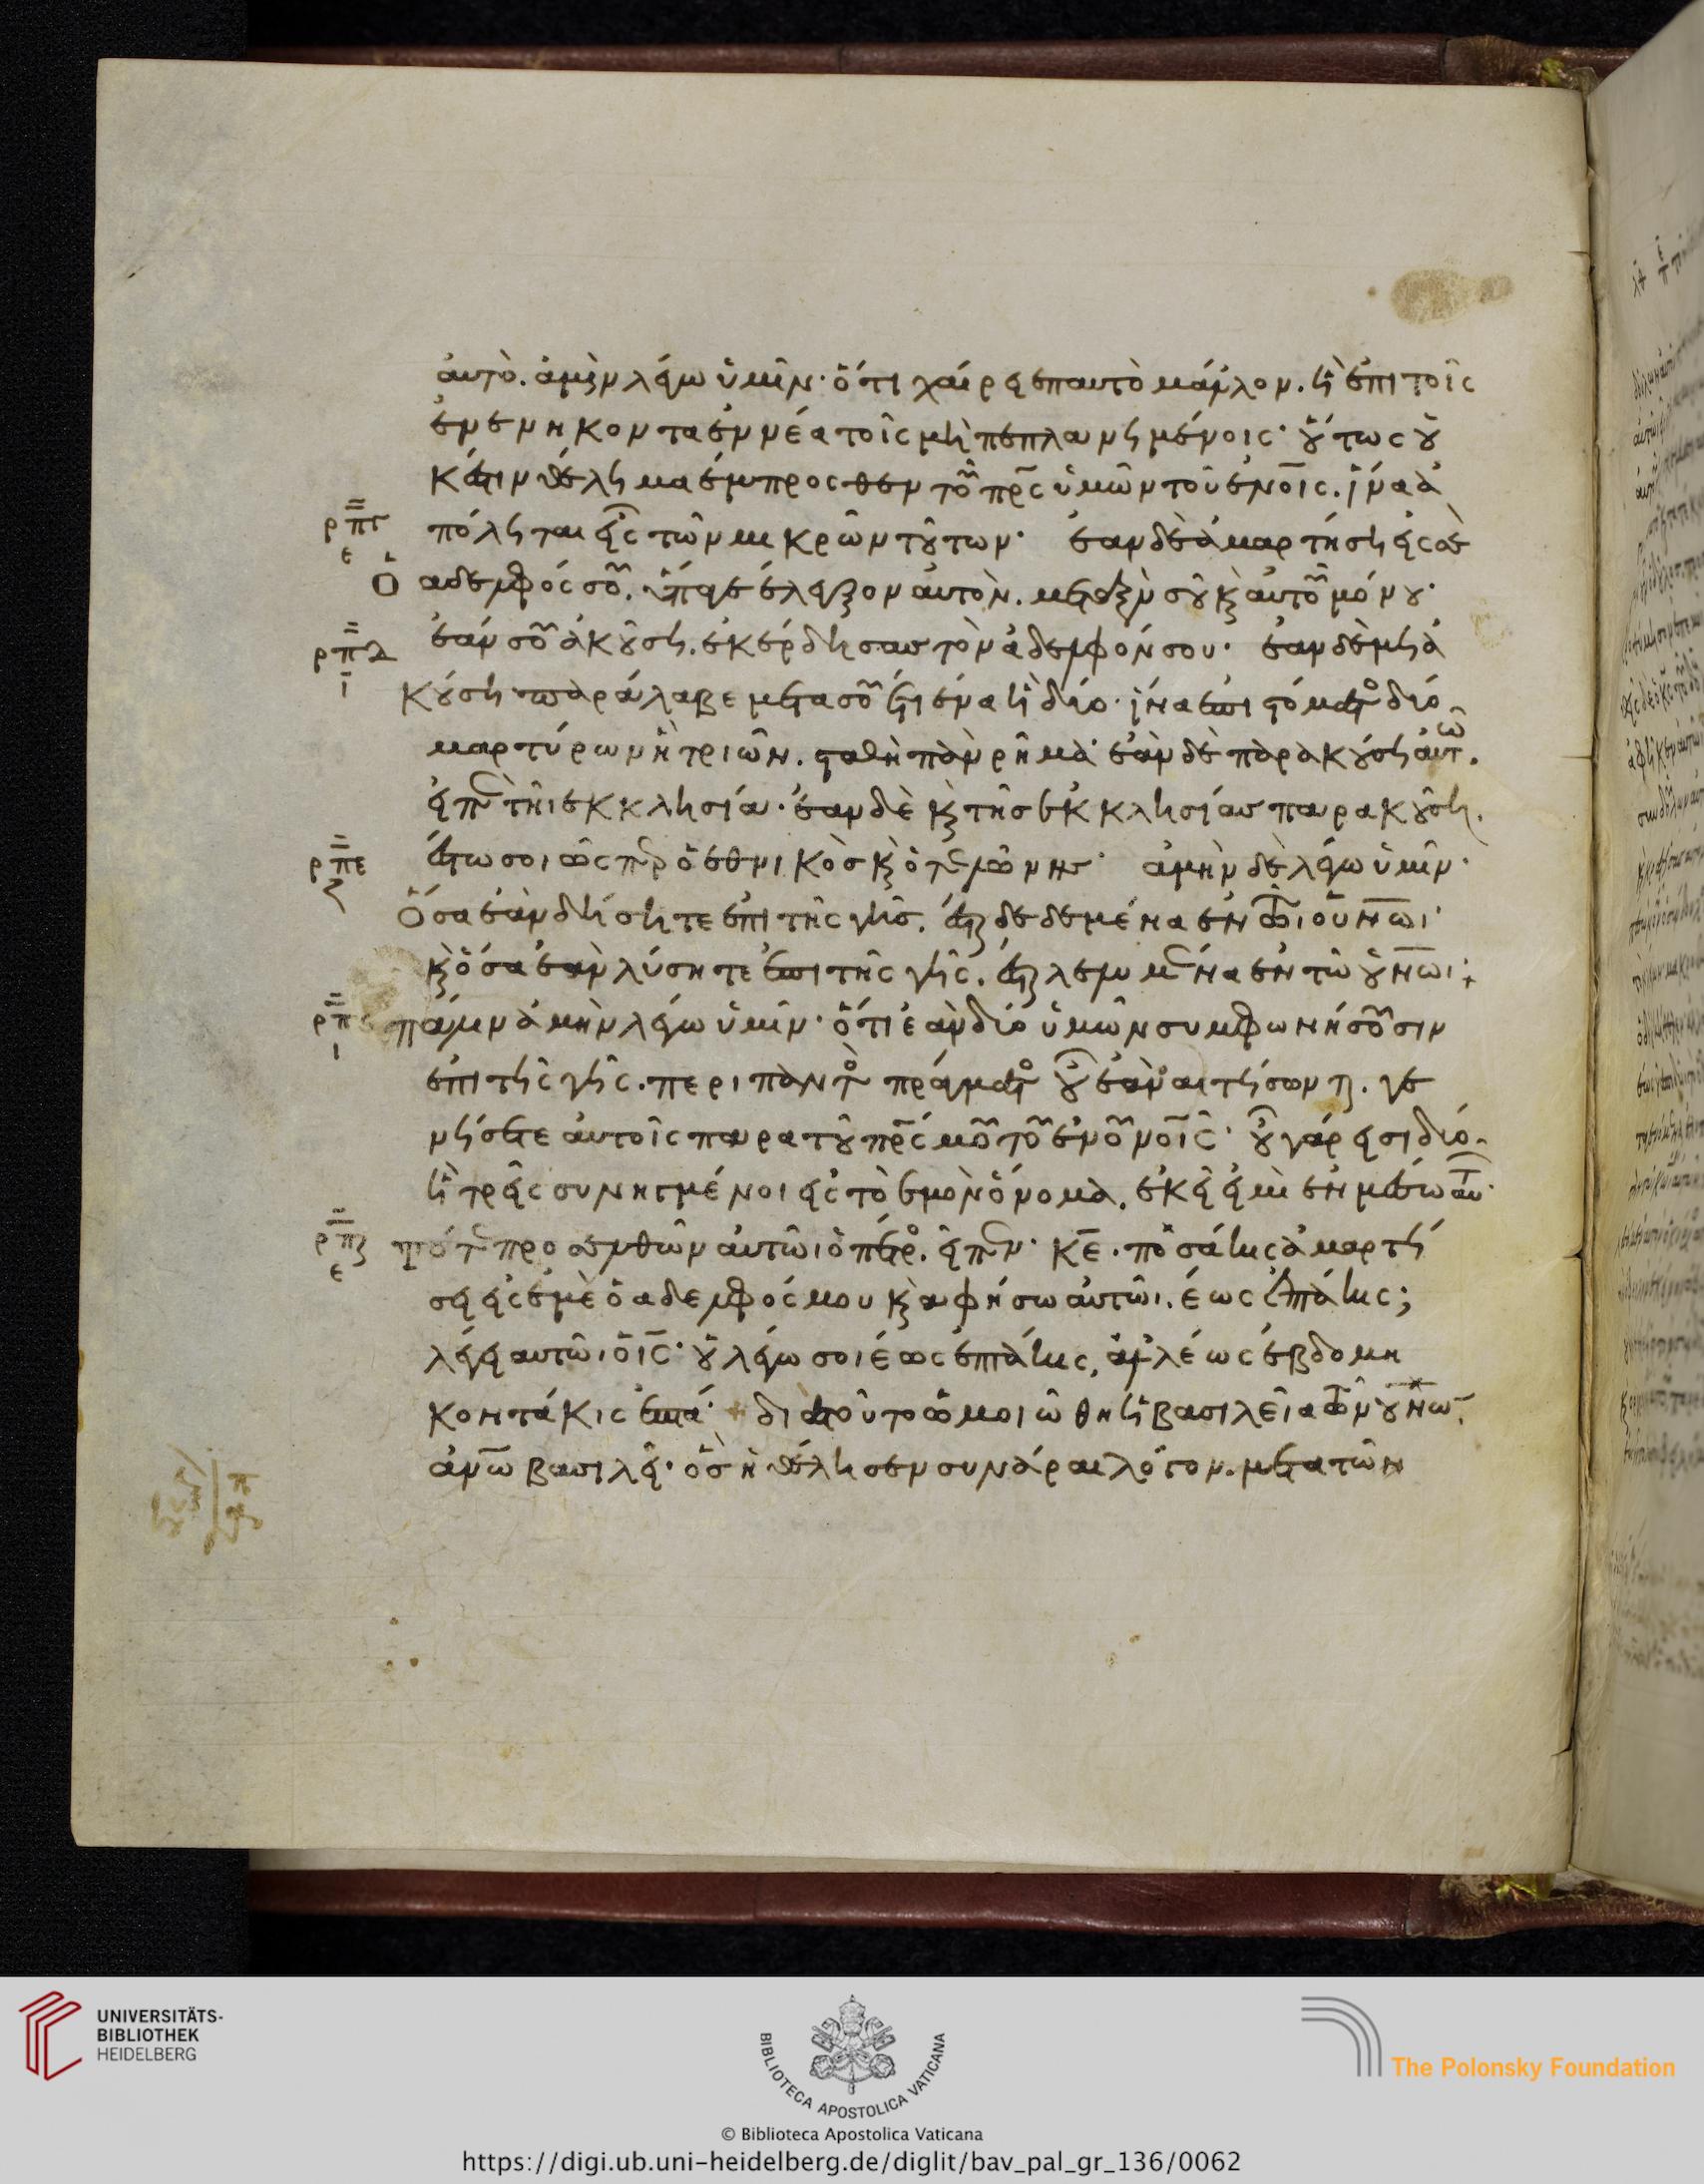 αυτὸ. ἀμὴν λέγω ὑμῖν· ὅτι χαίρει επαυτὸ μάλλον. ἢ ἐπι τοῖς
ἐνενηκοντα ἐννέα τοῖς μὴ πεπλανημένοις· οὕτως οὐ
κἔστιν θέλημα ἔμπροσθεν τοῦ πρ̅ς ὑμῶν τοῦ ἐν ο̅ι̅ς. ἵνα ἀ
ρπγ
ε
πόληται εἷς τῶν μικρῶν τούτων· ἐαν δὲ ἁμαρτήση εἰς σὲ
Ὁ αδελφός σου. ὕπαγε ἔλεγξον αυτὸν. μεταξὺ σοῦ κ αὐτοῦ μόνου·
ρπδ
ι
ἐάν σου ἀκούση. ἐκέρδησας τὸν ἀδελφόν σου· ἐαν δὲ μὴ ἀ
κούση παράλαβε μετα σοῦ ἔτι ἕνα ἢ δύο· ἵνα ἐπι στόματο δύο
μαρτύρων ἢ τριῶν. σταθῆ πᾶν ρῆμα· ἐὰν δὲ παρακούση αὐτῶ.
εἰπὲ τῆι ἐκκλησία· ἐαν δὲ κ τῆς ἐκκλησίας παρακούση.
ρπε
ζ
ἔστω σοι ὥσπερ ὁ ἐθνικὸς κ ὁ τελώνης· ἀμὴν δὲ λέγω ὑμῖν·
Ὅσα ἐὰν δήσητε ἐπι τῆς γῆς. ἔσται δεδεμένα ἐν τῶι οὐν̅ωι·
κ ὅσα ἐαν λύσητε ἐπι τῆς γῆς. ἔσται λελυμένα ἐν τῶ οὐν̅ωι·
ρπ
ι
πάλιν ἀμὴν λέγω ὑμῖν· ὅτι ἐὰν δύο ὑμῶν συμφωνήσουσιν
ἐπι τῆς γῆς. περι παντὸ πράγματο οὗ ἐὰν αιτήσωνται. γε
νήσεται αυτοῖς παρα τοῦ πρ̅ς μου τοῦ ἐν ου̅νο̅ι̅ς· οὗ γάρ εισι δύο
ἢ τρεῖς συνηγμένοι εἰς τὸ ἐμὸν ὄνομα. ἐκεῖ εἰμὶ ἐν μέσω αυτ·
ρπζ
ε
τότε προσελθὼν αὐτῶι ὁ πέτρο. εἶπεν· κ̅ε̅. ποσάκις ἁμαρτή
σει εἰς ἐμὲ ὁ αδελφός μου κ αφήσω αὐτῶι. ἕως ἑπτάκις;
λέγει αυτῶι ὁ ι̅ς̅· οὐ λέγω σοι ἕως ἑπτάκις, ἀλλ ἕως ἑβδομη
κοντάκις ἑπτά· + δια τοῦτο ὡμοιώθη ἡ βασιλεία τῶν οὐν̅ω̅.
ἀν̅ω̅ βασιλεῖ· ὃς ἠθέλησεν συνάραι λόγον. μετα τῶν
UNIVERSITÄTS-
BIBLIOTHEK
HEIDELBERG
BIBLIOTECA APOSTOLICA VATICANA
The Polonsky Foundation
© Biblioteca Apostolica Vaticana
https://digi.ub.uni-heidelberg.de/diglit/bav_pal_gr_136/0062